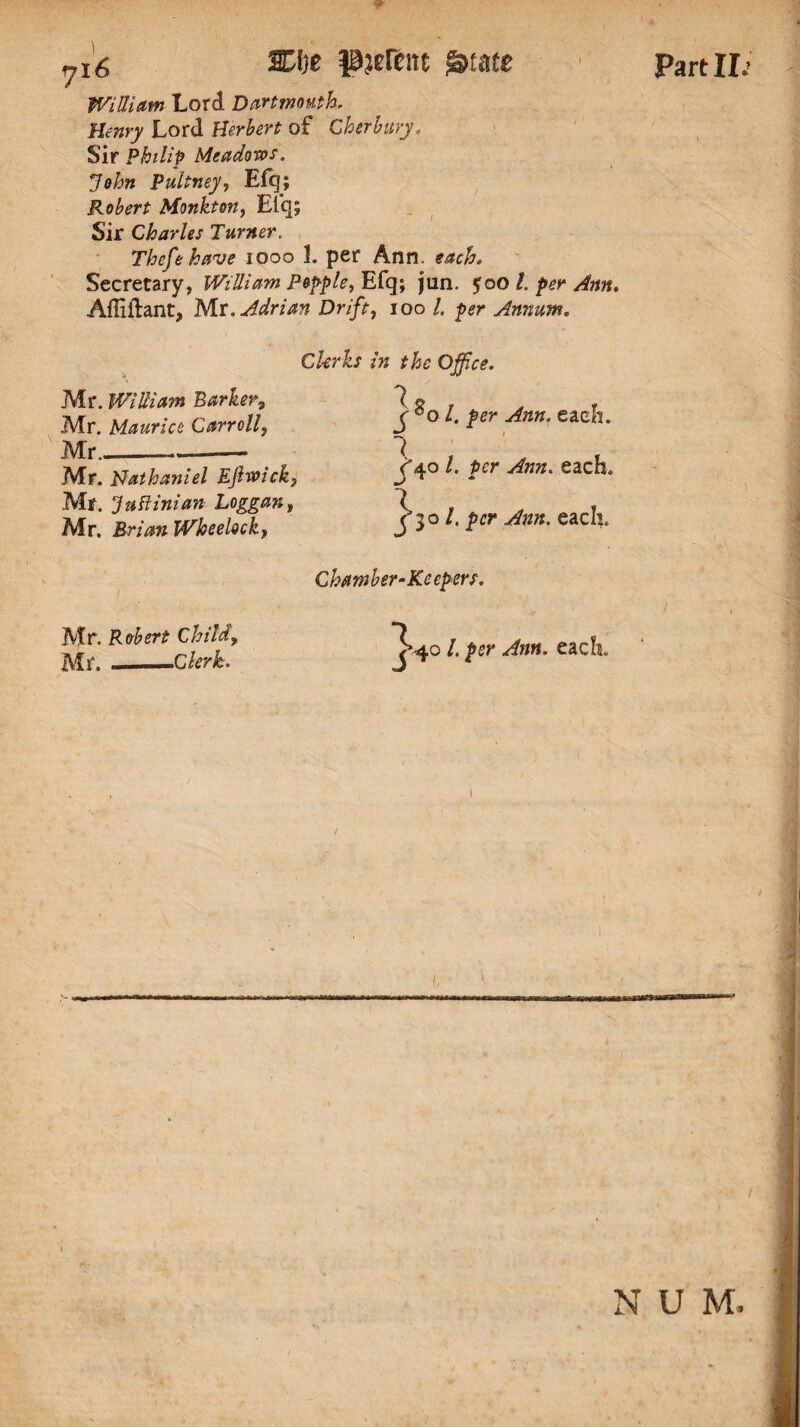 716 The Pꝛeſent State Part II.
William Lord Dartmouth.
Henry Lord Herbert of Cherbury.
Sir Philip Meadows.
John Pultney, Eſq;
Robert Monkton, Eſq;
Sir Charles Turner.
Theſe have 1000 l. per Ann. each.
Secretary, William Popple, Eſq; jun. 500 l. per Ann.
Aſſiſtant, Mr. Adrian Drift, 100 l. per Annum.
Clerks in the Office.
Mr. William Barker,
Mr. Maurice Carroll, } 80 l. per Ann. each.
Mr. ———
Mr. Nathaniel Eſtwick, } 40 l. per Ann. each.
Mr. Juſtinian Loggan,
Mr. Brian Wheelock, } 30 l. per Ann. each.
Chamber-Keepers.
Mr. Robert Child,
Mr. ——— Clerk. } 40 l. per Ann. each.
NUM.